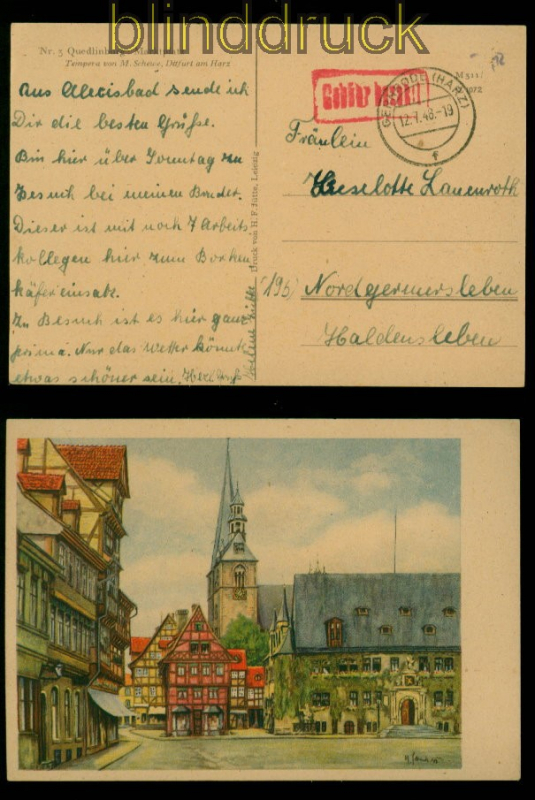 blinddruck
Nr. 3 Quedlinburg, Marktplatz
Tempera von M. Schwer, Ditfurt am Harz
aus Alexisbad sende ich
Dir die besten Grüße.
Bin hier über Sonntag zu
Besuch bei meinem Bruder.
Dieser ist mit noch 7 Arbeits
kollegen hier zum Borken
käfereinsatz.
Zu Besuch ist es hier ganz
prima. Nur das Wetter könnte
etwas schöner sein. Herzl.
Druck von H. F. Jütte, Leipzig
Gebühr bezahlt
GERNRODE (HARZ)
12.7.48.-19
f
M511/
Fräulein
Lieselotte Lauenroth
(19b) Nordgermersleben
Haldensleben